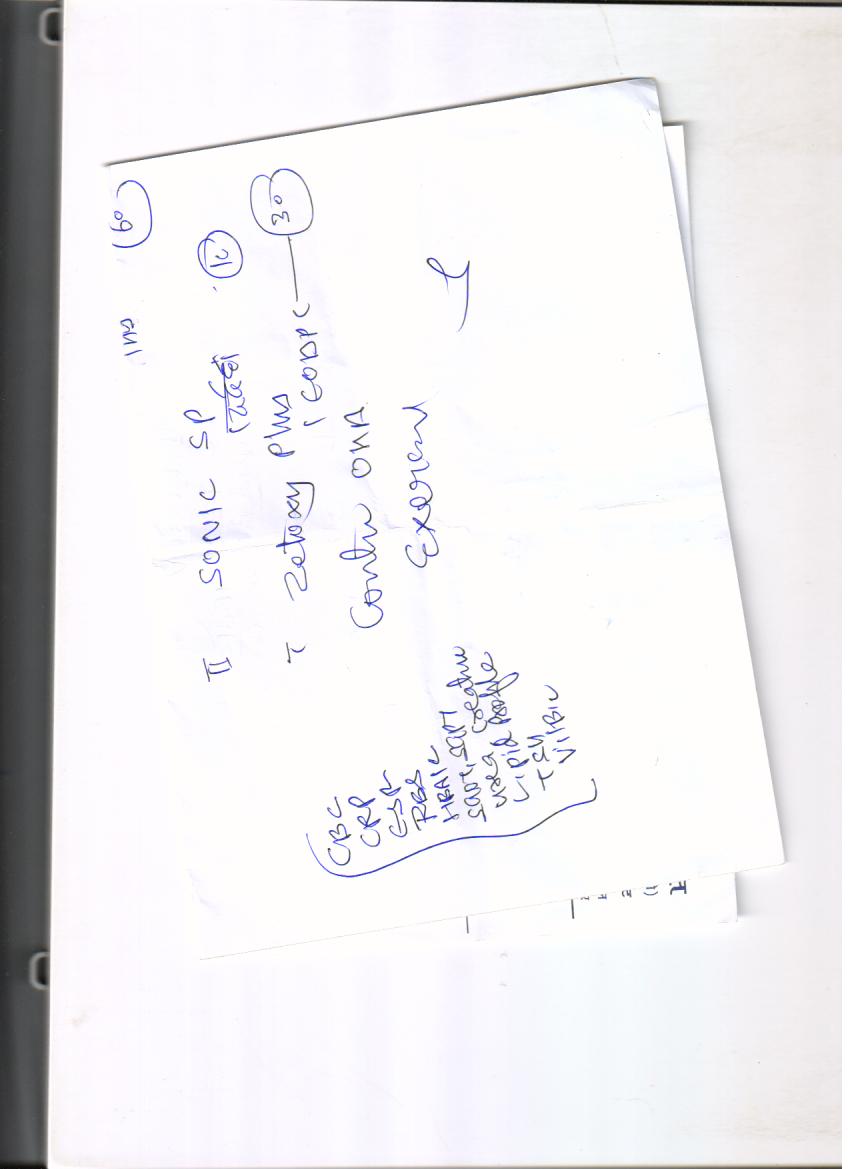 1ns 60
II SONIC SP 10
T Zetoxy Plus
1 CODPC — 30
Contin OHA
Exercise
CBC
CRP
ESR
RBS
HBA1C
SGOT, SGPT
Urea, Creatine
Lipid Profile
TSH
Vit B12